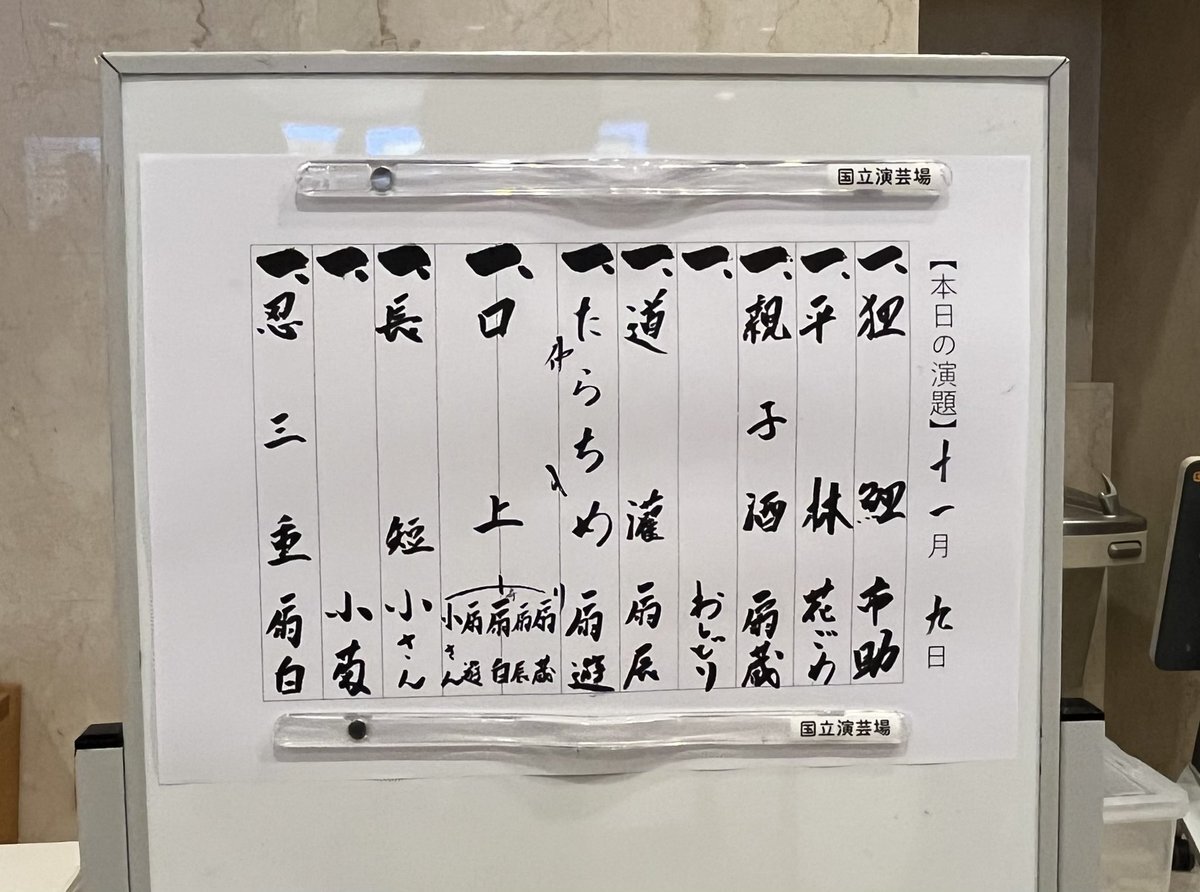 国立演芸場
【本日の演題】十一月九日
一、狸鯉 市助
一、平林 花ごめ
一、親子酒 扇蔵
一、おしどり
一、道灌 扇辰
一、たらちめ 扇遊
仲入り
一、口上 扇蔵 扇辰 扇白 扇遊 小さん
一、長短 小さん
一、小菊
一、忍三重 扇白
国立演芸場